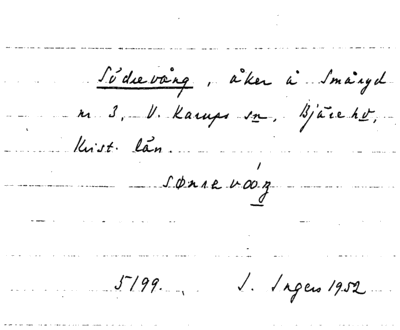 Södrevång, åker å Småryd
nr 3, V. Karups sn, Bjäre hd,
Krist. län.
sønre
5199. I. Ingers 1952